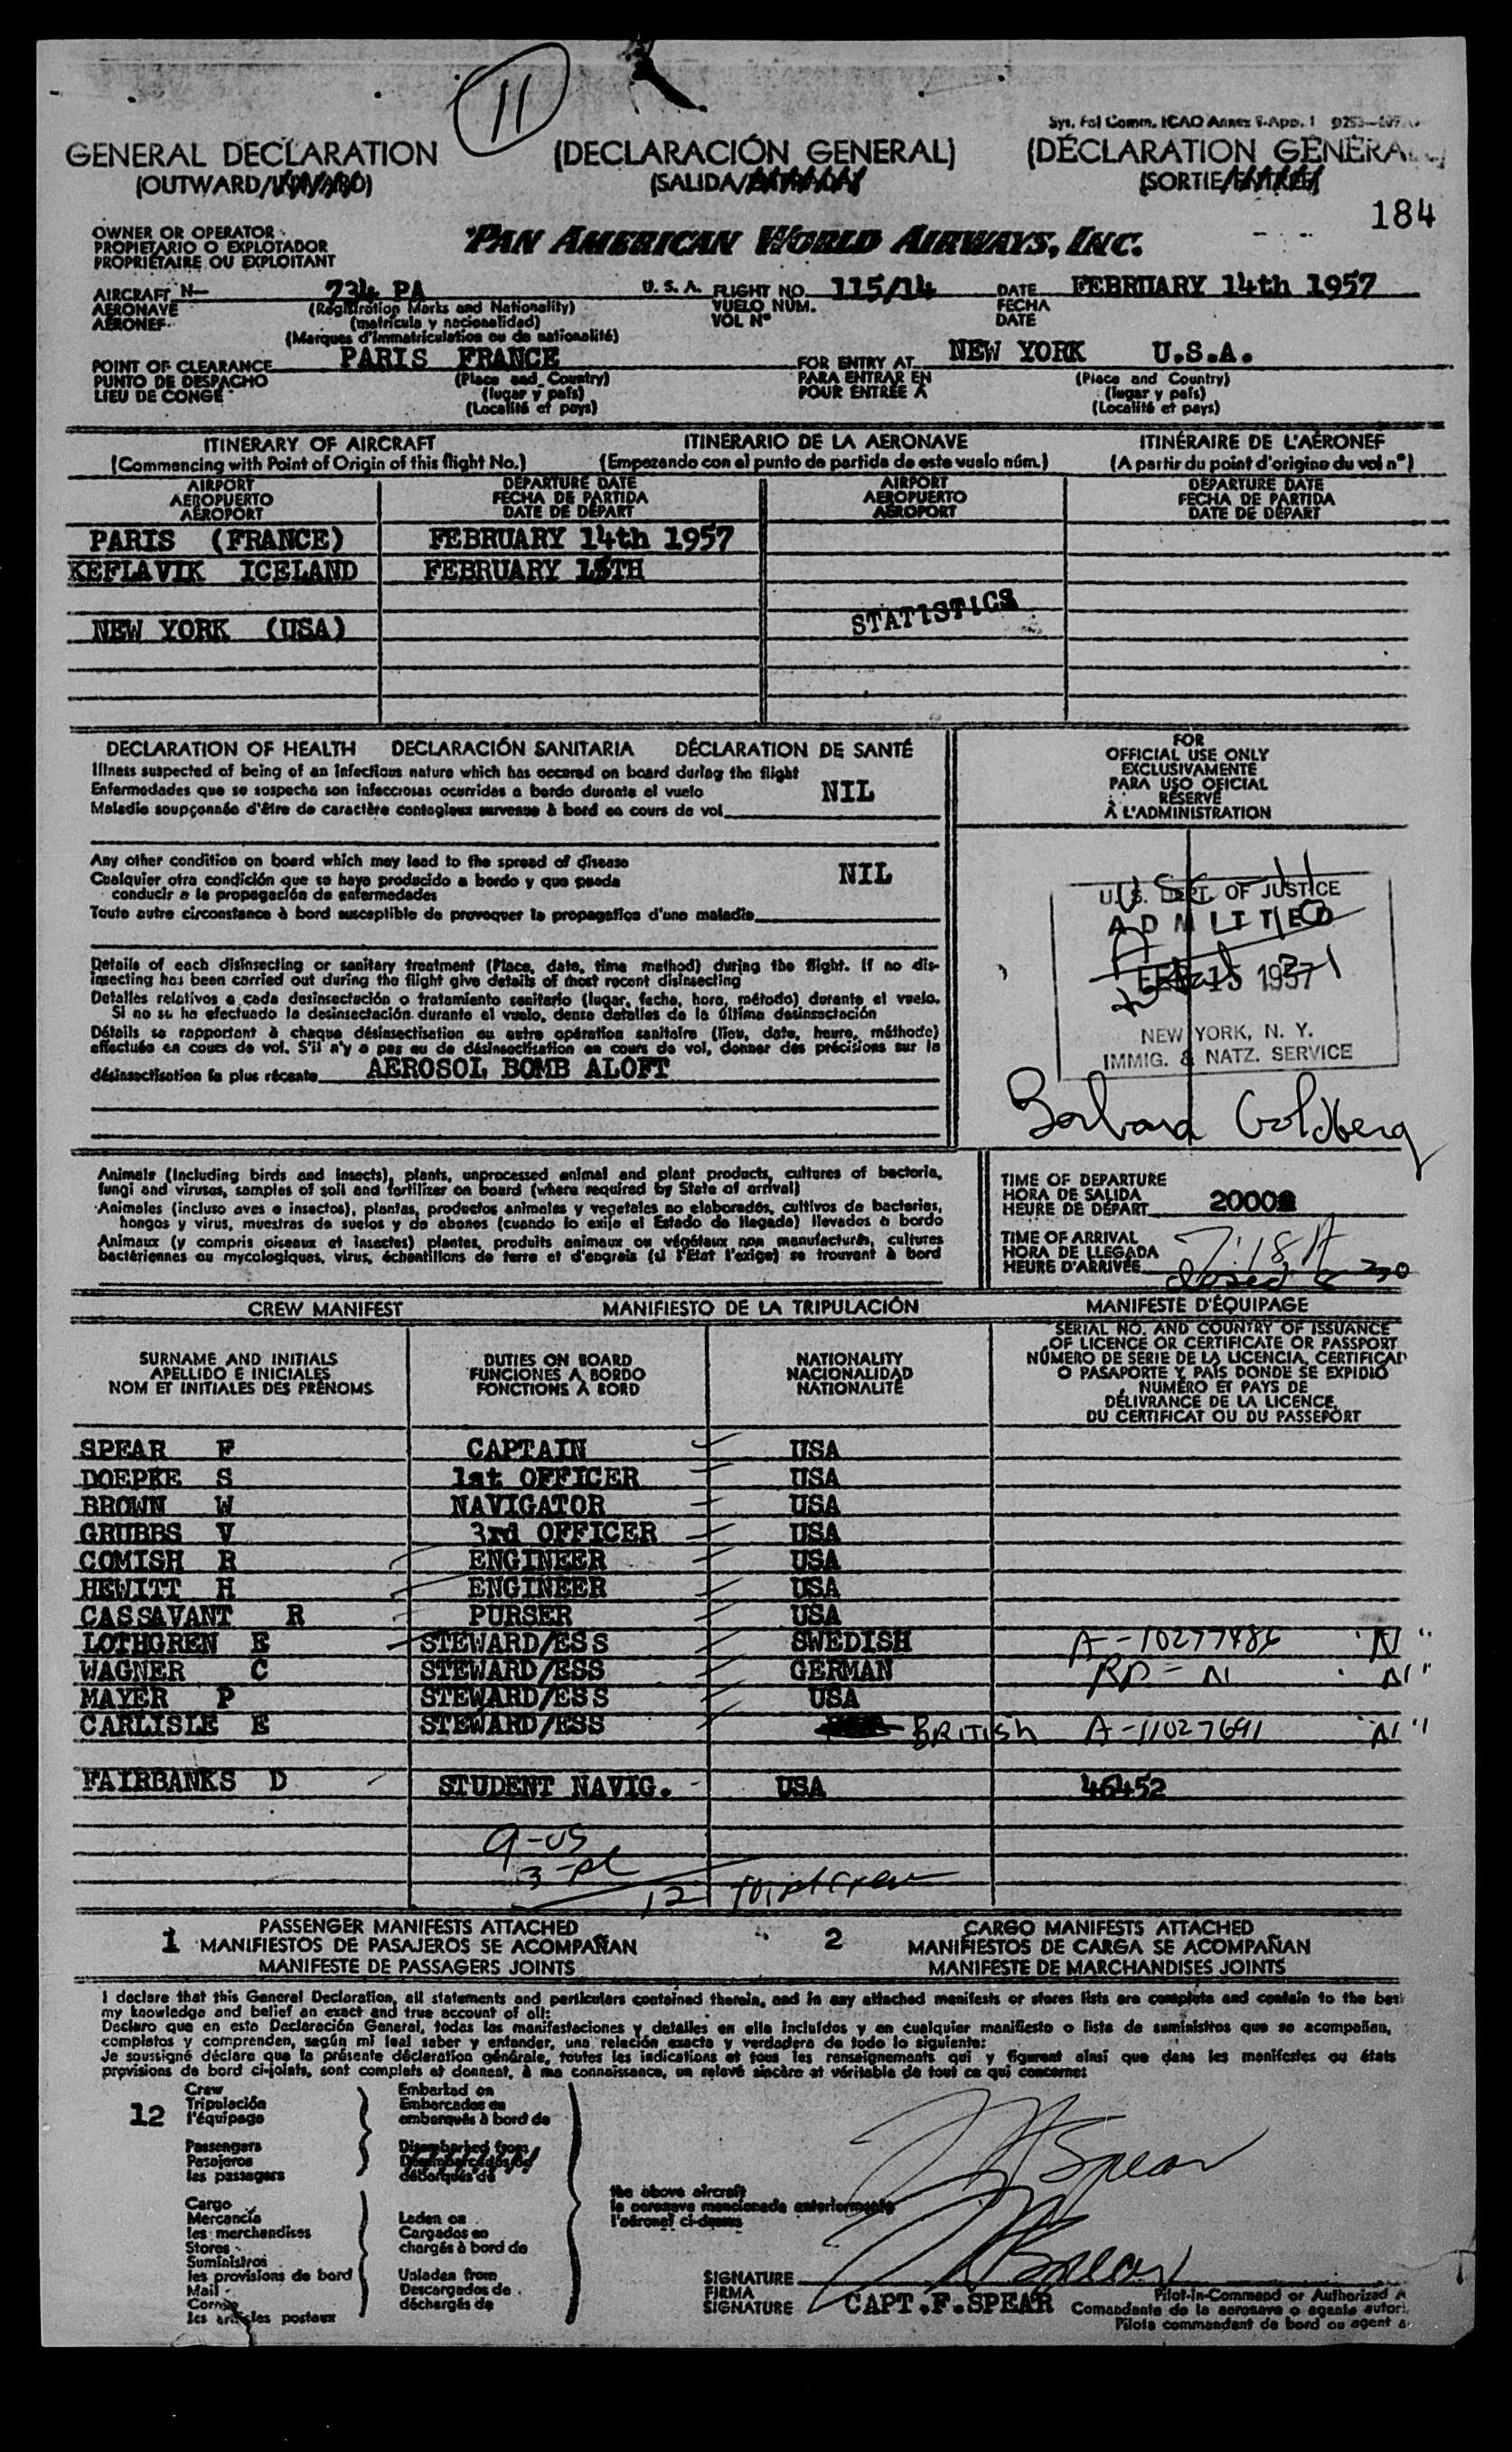 11
Sys. Fol Comm. ICAO Annex 9-App. 1
GENERAL DECLARATION (DECLARACIÓN GENERAL) (DÉCLARATION GÉNÉRA
(OUTWARD/ (SALIDA/ (SORTIE/
184
OWNER OR OPERATOR
PROPIETARIO O EXPLOTADOR
PROPRIÉTAIRE OU EXPLOITANT
PAN AMERICAN WORLD AIRWAYS, INC.
AIRCRAFT N- 734 PA U.S.A. FLIGHT NO. 115/14 DATE FEBRUARY 14th 1957
AERONAVE (Registration Marks and Nationality) VUELO NÚM. FECHA
AÉRONEF (matrícula y nacionalidad) VOL Nº DATE
(Marques d'immatriculation ou de nationalité)
POINT OF CLEARANCE PARIS FRANCE FOR ENTRY AT NEW YORK U.S.A.
PUNTO DE DESPACHO (Place and Country) PARA ENTRAR EN (Place and Country)
LIEU DE CONGÉ (lugar y país) POUR ENTRÉE A (lugar y país)
(Localité et pays) (Localité et pays)
ITINERARY OF AIRCRAFT ITINERARIO DE LA AERONAVE ITINÉRAIRE DE L'AÉRONEF
(Commencing with Point of Origin of this flight No.) (Empezando con el punto de partida de este vuelo núm.) (A partir du point d'origine du vol nº)
AIRPORT DEPARTURE DATE AIRPORT DEPARTURE DATE
AEROPUERTO FECHA DE PARTIDA AEROPUERTO FECHA DE PARTIDA
AÉROPORT DATE DE DÉPART AÉROPORT DATE DE DÉPART
PARIS (FRANCE) FEBRUARY 14th 1957
KEFLAVIK ICELAND FEBRUARY 15TH
STATISTICS
NEW YORK (USA)
DECLARATION OF HEALTH DECLARACIÓN SANITARIA DÉCLARATION DE SANTÉ
Illness suspected of being of an infectious nature which has occured on board during the flight
Enfermedades que se sospecha son infecciosas ocurridas a bordo durante el vuelo NIL
Maladie soupçonnée d'être de caractère contagieux survenue à bord en cours de vol
Any other condition on board which may lead to the spread of disease
Cualquier otra condición que se haya producido a bordo y que pueda NIL
conducir a la propagación de enfermedades
Toute autre circonstance à bord susceptible de provoquer la propagation d'une maladie
Details of each disinsecting or sanitary treatment (Place, date, time method) during the flight. If no dis-
insecting has been carried out during the flight give details of most recent disinsecting
Detalles relativos a cada desinsectación o tratamiento sanitario (lugar, fecha, hora, método) durante el vuelo.
Si no se ha efectuado la desinsectación durante el vuelo, dense detalles de la última desinsectación
Détails se rapportant à chaque désinsectisation ou autre opération sanitaire (lieu, date, heure, méthode)
effectuée en cours de vol. S'il n'y a pas eu de désinsectisation en cours de vol, donner des précisions sur la
désinsectisation la plus récente AEROSOL BOMB ALOFT
FOR
OFFICIAL USE ONLY
EXCLUSIVAMENTE
PARA USO OFICIAL
RÉSERVÉ
À L'ADMINISTRATION
U.S. DEPT. OF JUSTICE
ADMITTED
FEB 15 1957
NEW YORK, N. Y.
IMMIG. & NATZ. SERVICE
Barbara Goldberg
Animals (including birds and insects), plants, unprocessed animal and plant products, cultures of bacteria,
fungi and viruses, samples of soil and fertilizer on board (where required by State of arrival)
Animales (incluso aves e insectos), plantas, productos animales y vegetales no elaborados, cultivos de bacterias,
hongos y virus, muestras de suelos y de abonos (cuando lo exija el Estado de llegada) llevados a bordo
Animaux (y compris oiseaux et insectes) plantes, produits animaux ou végétaux non manufacturés, cultures
bactériennes ou mycologiques, virus, échantillons de terre et d'engrais (si l'État l'exige) se trouvant à bord
TIME OF DEPARTURE
HORA DE SALIDA
HEURE DE DÉPART 2000
TIME OF ARRIVAL
HORA DE LLEGADA 7:18 A
HEURE D'ARRIVÉE
CREW MANIFEST MANIFIESTO DE LA TRIPULACIÓN MANIFESTE D'ÉQUIPAGE
SURNAME AND INITIALS DUTIES ON BOARD NATIONALITY
APELLIDO E INICIALES FUNCIONES A BORDO NACIONALIDAD
NOM ET INITIALES DES PRÉNOMS FONCTIONS À BORD NATIONALITÉ
SERIAL NO. AND COUNTRY OF ISSUANCE
OF LICENCE OR CERTIFICATE OR PASSPORT
NÚMERO DE SERIE DE LA LICENCIA, CERTIFICAD
O PASAPORTE Y PAÍS DONDE SE EXPIDIÓ
NUMÉRO ET PAYS DE
DÉLIVRANCE DE LA LICENCE,
DU CERTIFICAT OU DU PASSEPORT
SPEAR F CAPTAIN USA
DOEPKE S 1st OFFICER USA
BROWN W NAVIGATOR USA
GRUBBS V 3rd OFFICER USA
COMISH R ENGINEER USA
HEWITT H ENGINEER USA
CASSAVANT R PURSER USA
LOTHGREN E STEWARD/ESS SWEDISH A-10277486 "N"
WAGNER C STEWARD/ESS GERMAN RP-N "N"
MAYER P STEWARD/ESS USA
CARLISLE E STEWARD/ESS BRITISH A-11027691 "N"
FAIRBANKS D STUDENT NAVIG. USA 46452
9-US
3-al
12 total crew
1 PASSENGER MANIFESTS ATTACHED 2 CARGO MANIFESTS ATTACHED
MANIFIESTOS DE PASAJEROS SE ACOMPAÑAN MANIFIESTOS DE CARGA SE ACOMPAÑAN
MANIFESTE DE PASSAGERS JOINTS MANIFESTE DE MARCHANDISES JOINTS
I declare that this General Declaration, all statements and particulars contained therein, and in any attached manifests or stores lists are complete and contain to the best
my knowledge and belief an exact and true account of all:
Declaro que en esta Declaración General, todas las manifestaciones y detalles en ella incluídos y en cualquier manifiesto o lista de suministros que se acompañan,
completos y comprenden, según mi leal saber y entender, una relación exacta y verdadera de todo lo siguiente:
Je soussigné déclare que la présente déclaration générale, toutes les indications et tous les renseignements qui y figurent ainsi que dans les manifestes ou états
provisions de bord ci-joints, sont complets et donnent, à ma connaissance, un relevé sincère et véritable de tout ce qui concerne:
12
Crew Embarked on
Tripulación Embarcados en
l'équipage embarqués à bord de
Passengers Disembarked from
Pasajeros Desembarcados de
les passagers débarqués de
the above aircraft
la aeronave mencionada anteriormente
l'aéronef ci-dessus
Cargo
Mercancía Laden on
les marchandises Cargados en
Stores chargés à bord de
Suministros
les provisions de bord Unladen from
Mail Descargados de
Correo déchargés de
les articles postaux
Spear
Spear
SIGNATURE
FIRMA
SIGNATURE CAPT.F.SPEAR
Pilot-in-Command or Authorized A
Comandante de la aeronave o agente autori
Pilote commandant de bord ou agent a